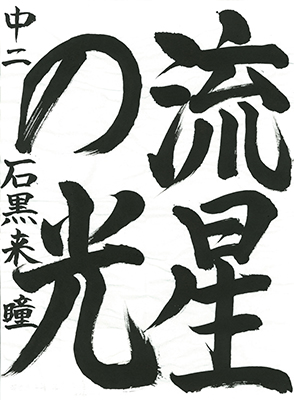 流星
の光
中二 石黒来瞳